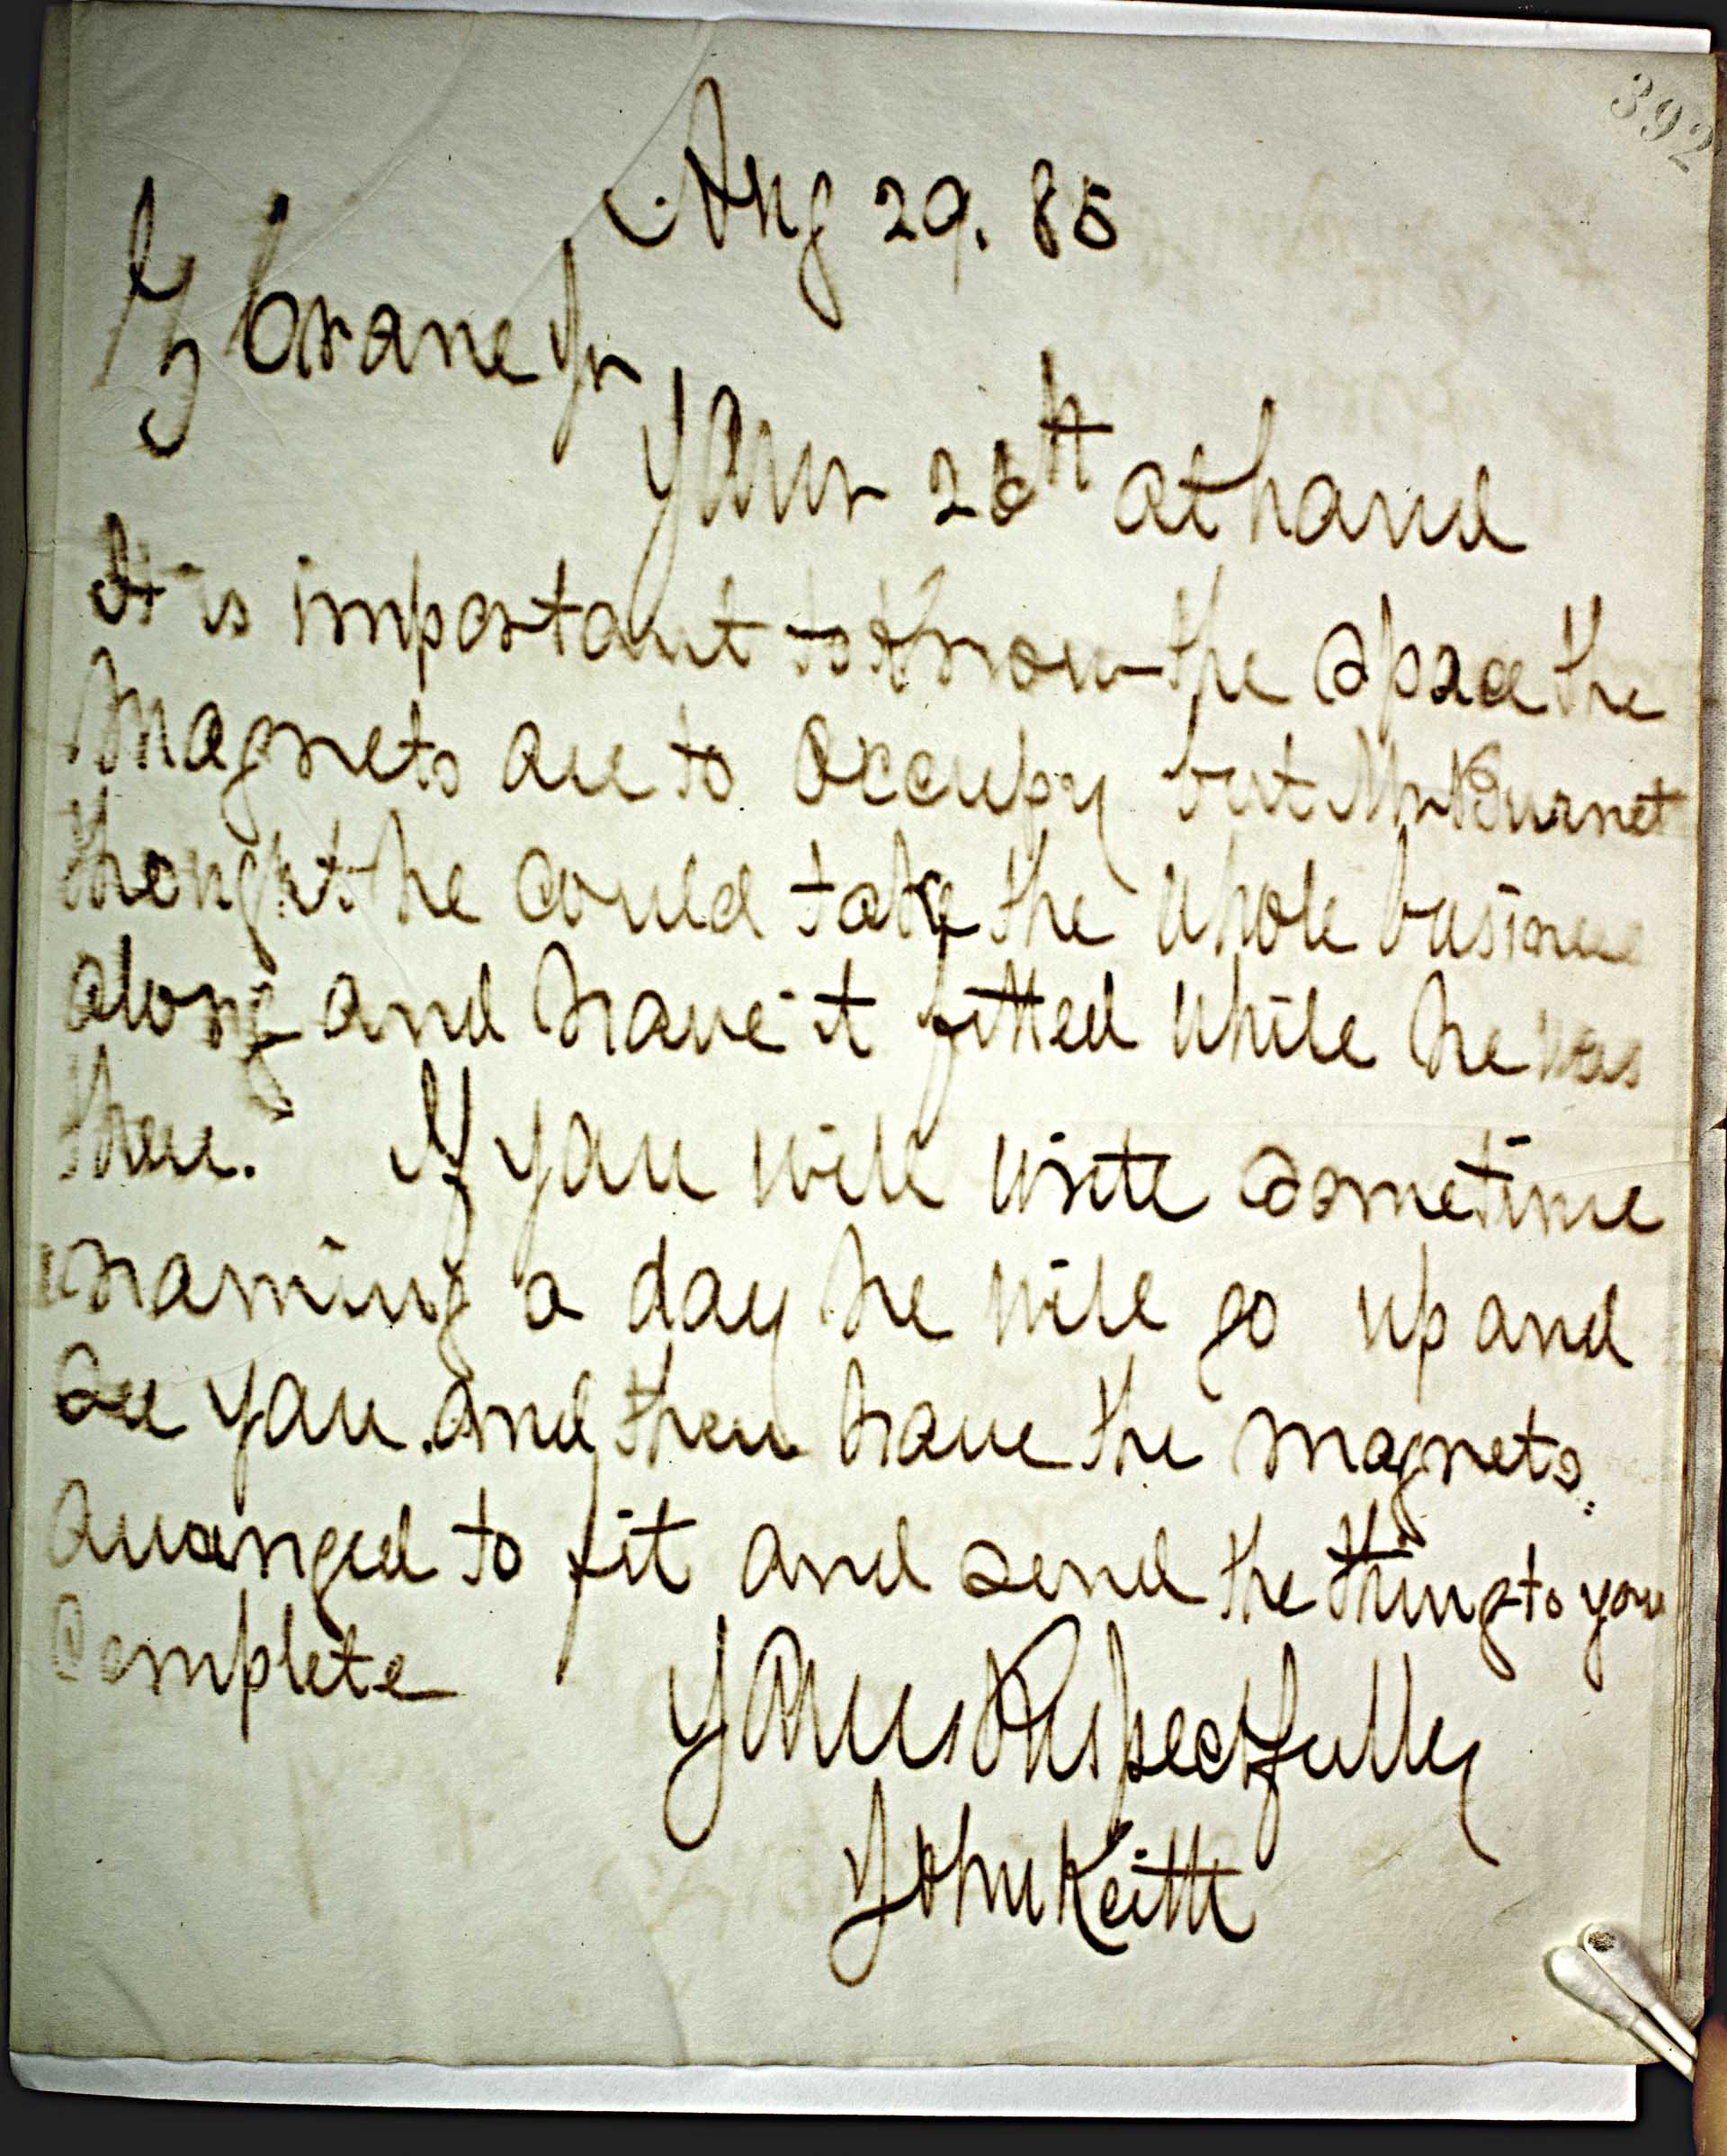 392
Aug 29. 85
Z Crane Jr
Your 26th at hand
It is important to know the space the
Magnets are to occupy but Mr Burnet
thought he could take the whole business
along and have it fitted while he was
there. If you will write sometime
naming a day he will go up and
see you and then have the magnets
arranged to fit and send the thing to you
Complete
Yours Respectfully
John Keith